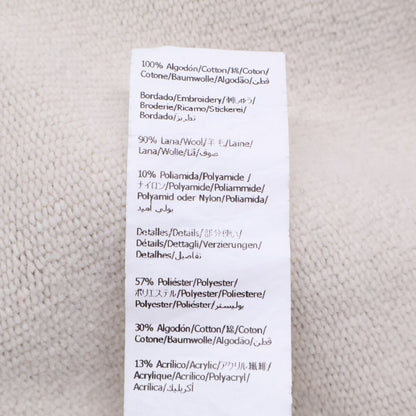 100% Algodón/Cotton/綿/Coton/
Cotone/Baumwolle/Algodão/قطن/
Bordado/Embroidery/刺しゅう/
Broderie/Ricamo/Stickerei/
Bordado/تطريز/
90% Lana/Wool/羊毛/Laine/
Lana/Wolle/Lã/صوف/
10% Poliamida/Polyamide/
ナイロン/Polyamide/Poliammide/
Polyamid oder Nylon/Poliamida/
بولي أميد/
Detalles/Details/部分使い/
Détails/Dettagli/Verzierungen/
Detalhes/تفاصيل/
57% Poliéster/Polyester/
ポリエステル/Polyester/Poliestere/
Polyester/Poliéster/بوليستر/
30% Algodón/Cotton/綿/Coton/
Cotone/Baumwolle/Algodão/قطن/
13% Acrílico/Acrylic/アクリル繊維/
Acrylique/Acrilico/Polyacryl/
Acrílica/أكريليك/